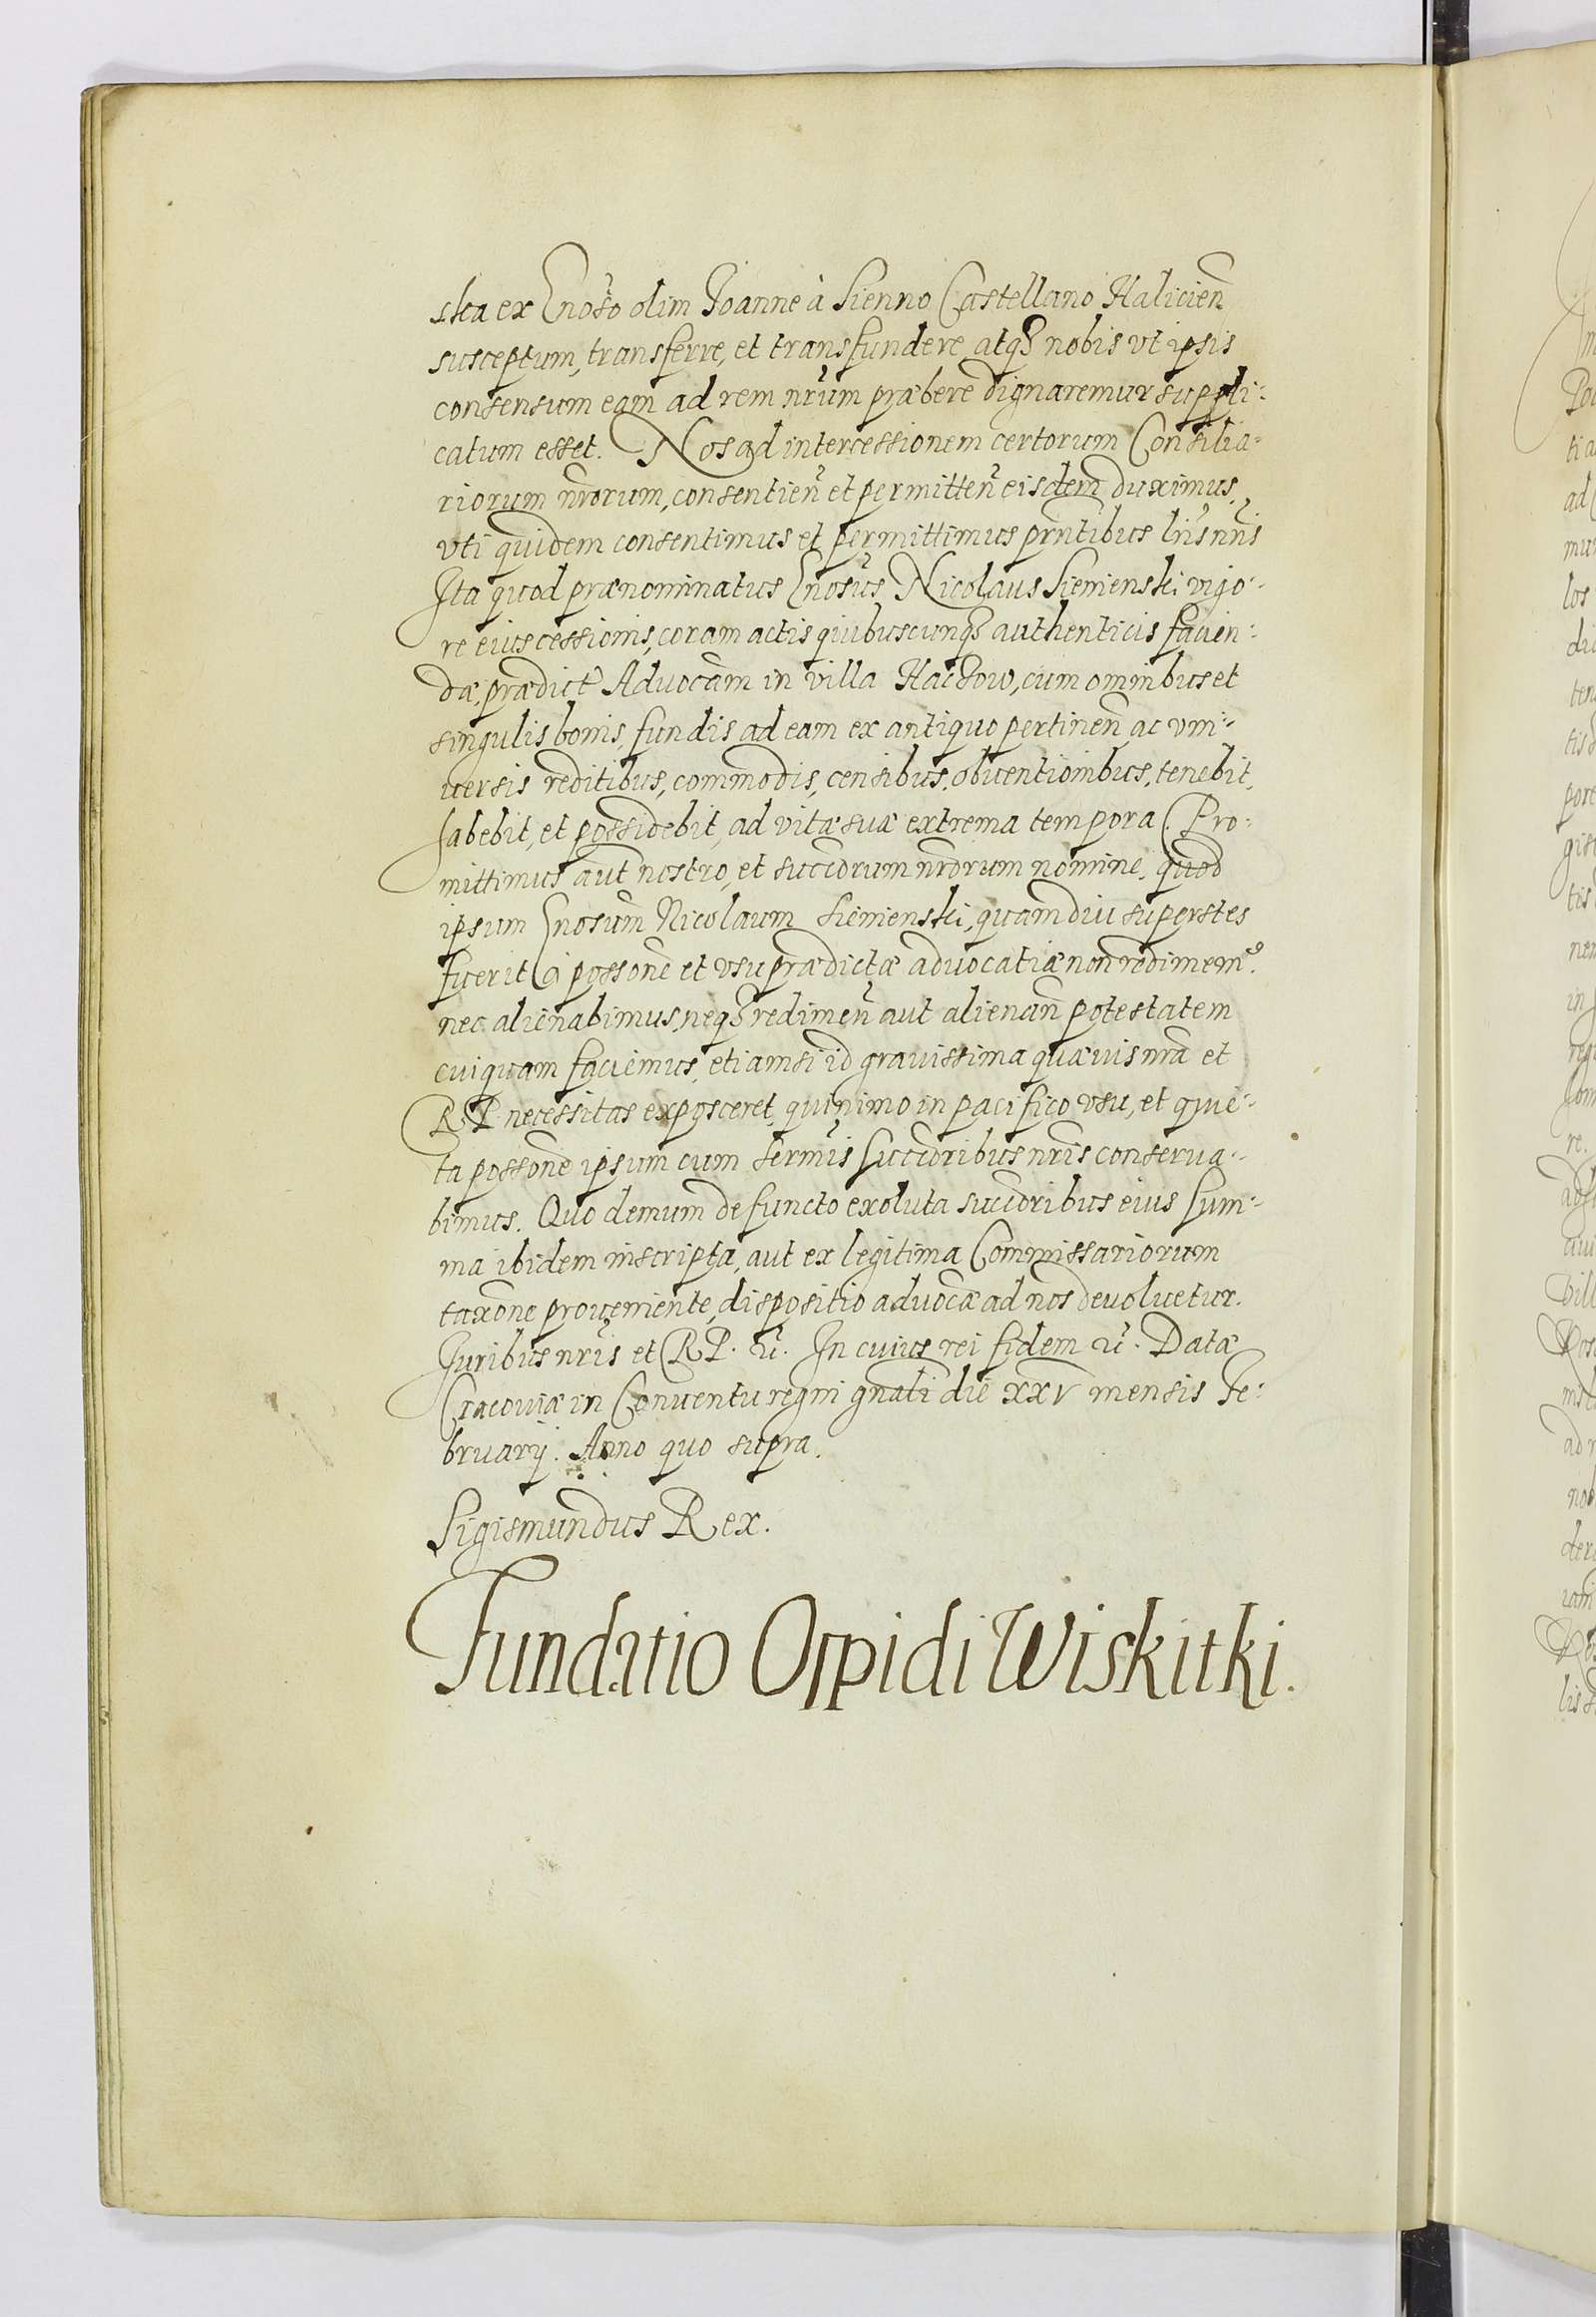 ska ex Gnoso olim Joanne à Sienno Castellano Halicien̄
susceptum, transferre, et transfundere atqꝫ nobis vt ipsis
consensum eam ad rem nr̄um præbere dignaremur suppli-
catum esset. Nos ad intercessionem certorum Consilia-
riorum nr̄orum, consentien̄ et permitten̄ eisdem duximus,
vti quidem consentimus et permittimus prn̄tibus lr̄is nr̄is
Ita quod prænominatus Gnosus Nicolaus Sienienski vigo-
re eius cessionis, coram actis quibuscunqꝫ authenticis facien-
dæ, prædict Advocām in villa Haczow, cum omnibus et
singulis bonis, fundis ad eam ex antiquo pertinen̄ ac vni-
uersis reditibus, commodis, censibus, obuentionibus, tenebit,
habebit, et possidebit, ad vitæ suæ extrema tempora. Pro-
mittimus aut̄ nostro, et succorum nr̄orum nomine, quod
ipsum Gnosum Nicolaum Sienienski, quamdiu superstes
fuerit à possone et vsu prædictæ advocatiæ non redimem9.
nec alienabimus, neqꝫ redimen̄ aut alienan̄ potestatem
cuiquam faciemus, etiamsi id gravissima quævis nr̄a et
RP necessitas exposceret, quinimo in pacifico vsu, et quie-
ta possone ipsum cum sermis succoribus nr̄is conserua-
bimus. Quo demum defuncto exoluta succoribus eius sum-
ma ibidem inscripta, aut ex legitima Commissariorum
taxone proueniente, dispositio advocæ ad nos devoluetur.
Iuribus nr̄is et RP. &c. In cuius rei fidem &c. Datæ
Cracoviæ in Conventu regni gnāli die XXV mensis Fe-
bruarij. Anno quo supra.
Sigismundus Rex.
Fundatio Oppidi Wiskitki.